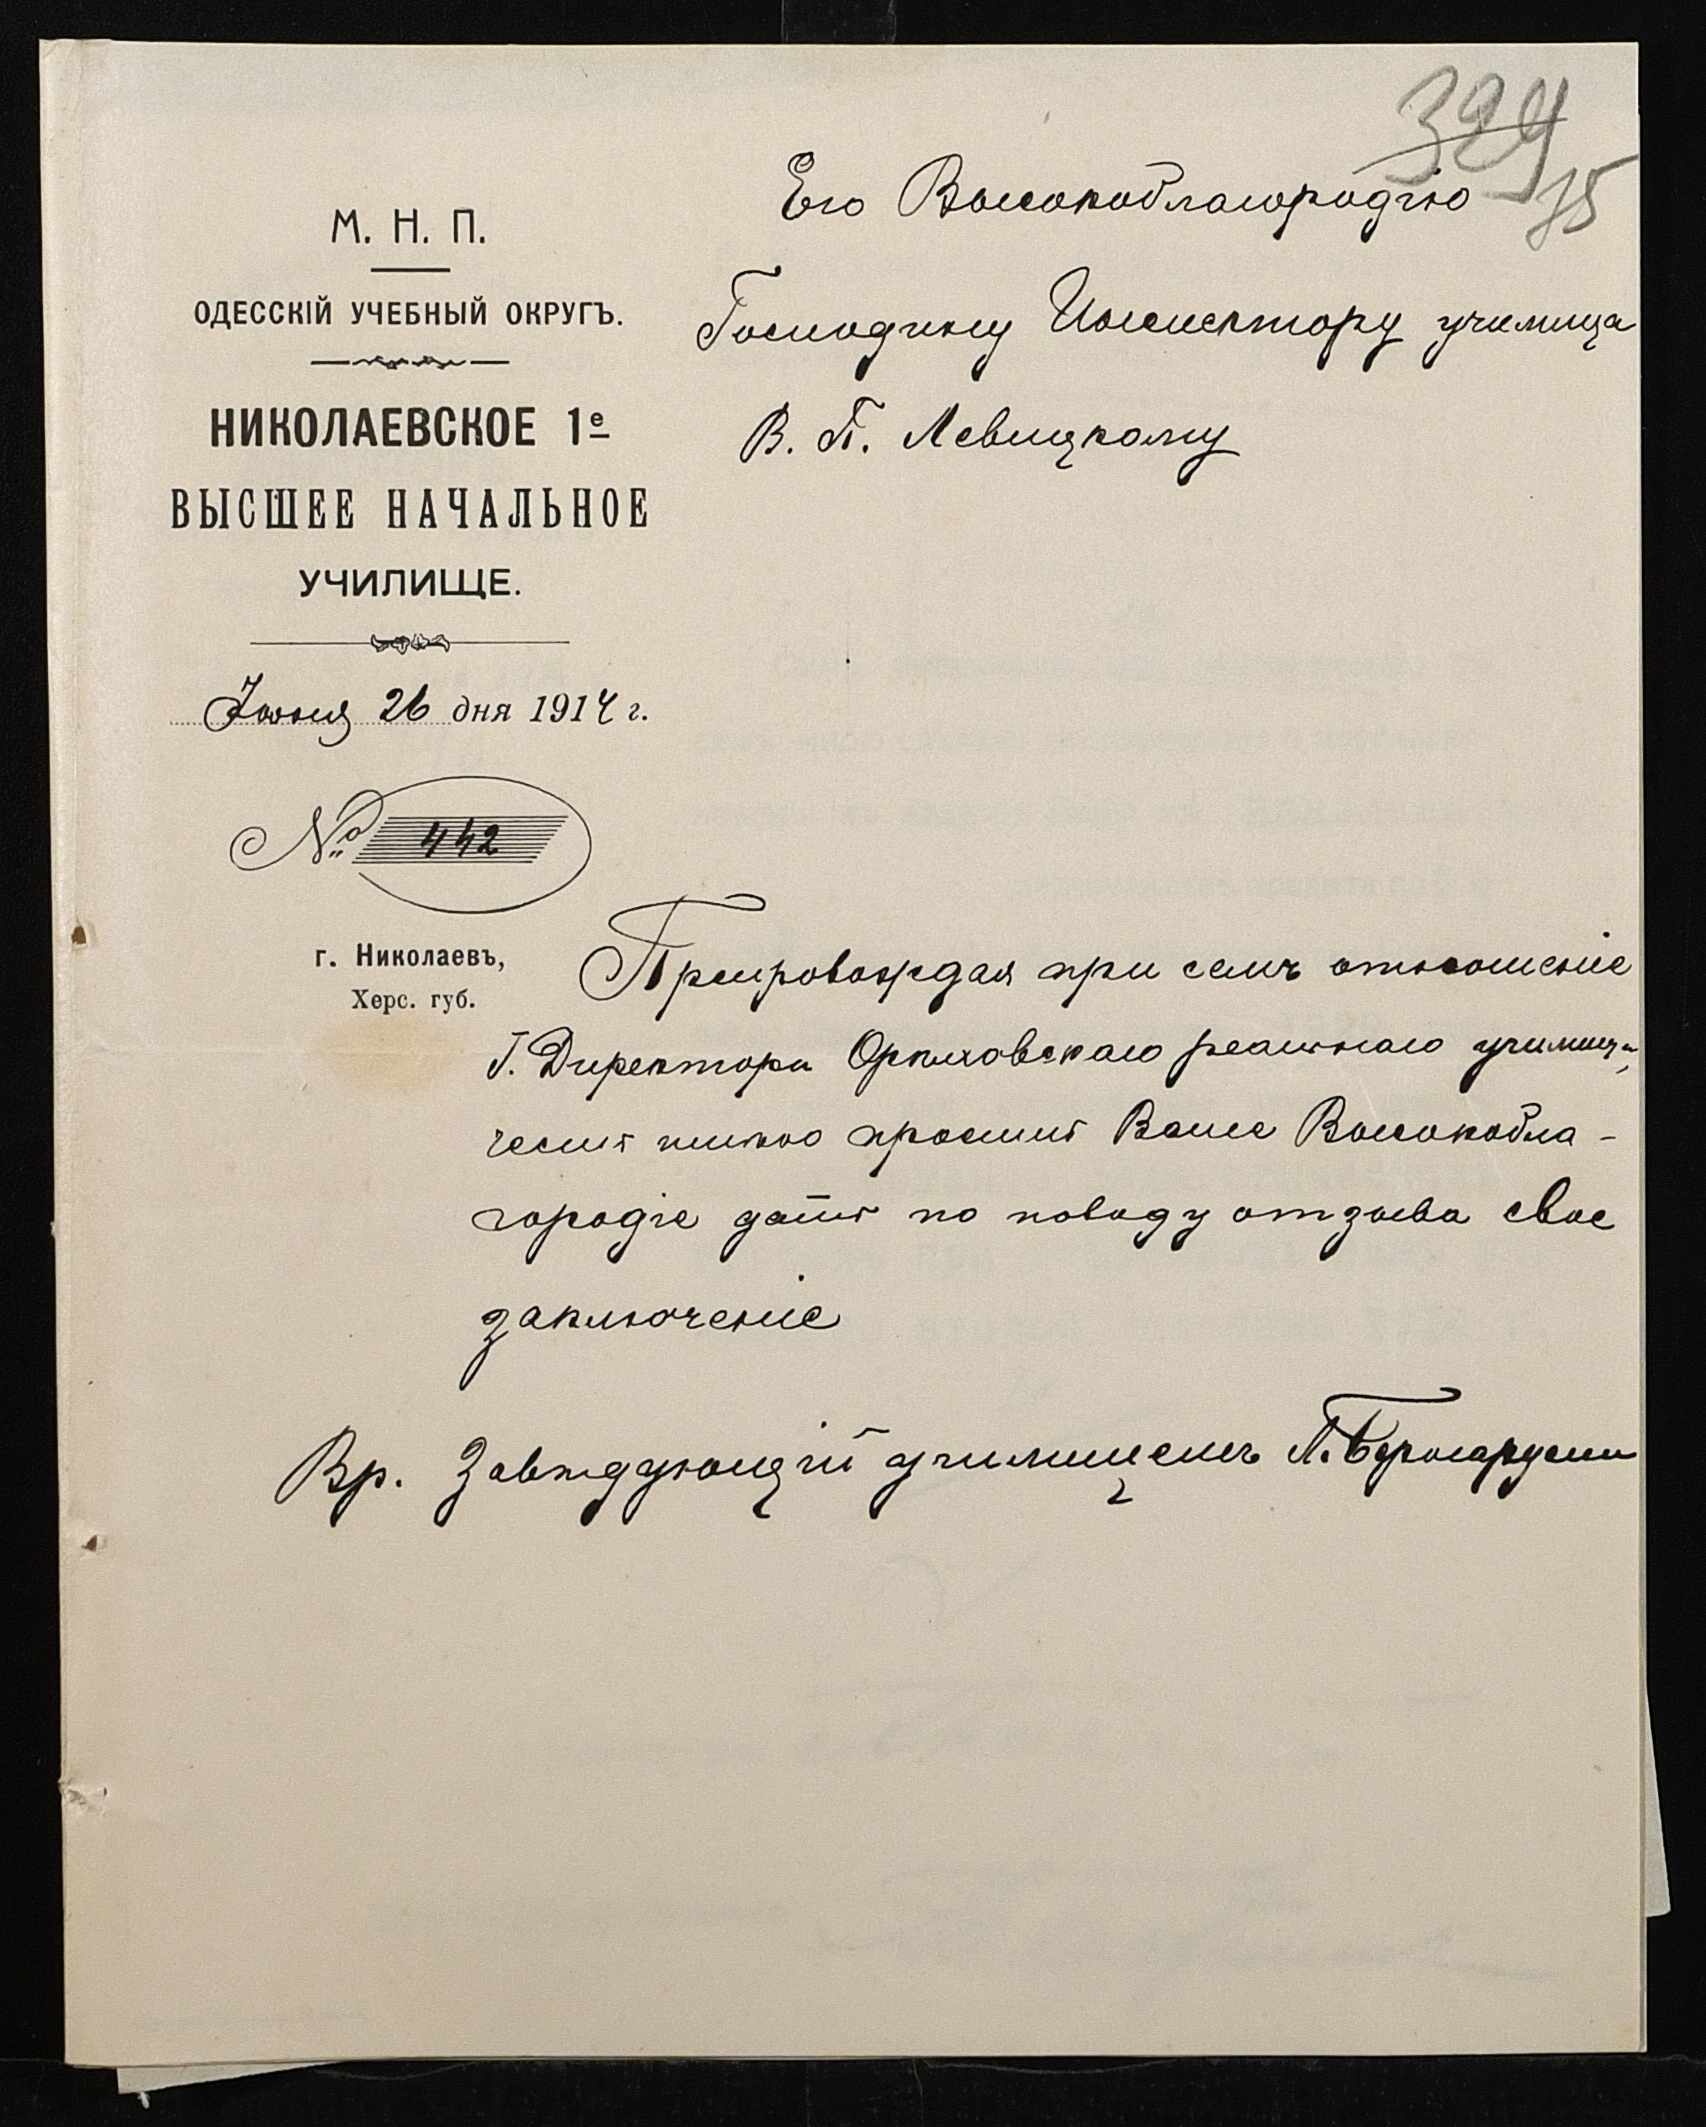 329
75
М. Н. П.
ОДЕССКІЙ УЧЕБНЫЙ ОКРУГЪ.
НИКОЛАЕВСКОЕ 1е
ВЫСШЕЕ НАЧАЛЬНОЕ
УЧИЛИЩЕ.
Іюня 26 дня 1914 г.
№ 442
г. Николаевъ,
Херс. губ.
Его Высокоблагородію
Господину Инспектору училища
В. П. Левицкому
Препровождая при семъ отношеніе
Г. Директора Орѣховскаго реальнаго училища,
честь имѣю просить Ваше Высокобла-
городіе дать по поводу отзыва свое
заключеніе
Вр. Завѣдующій училищемъ П.